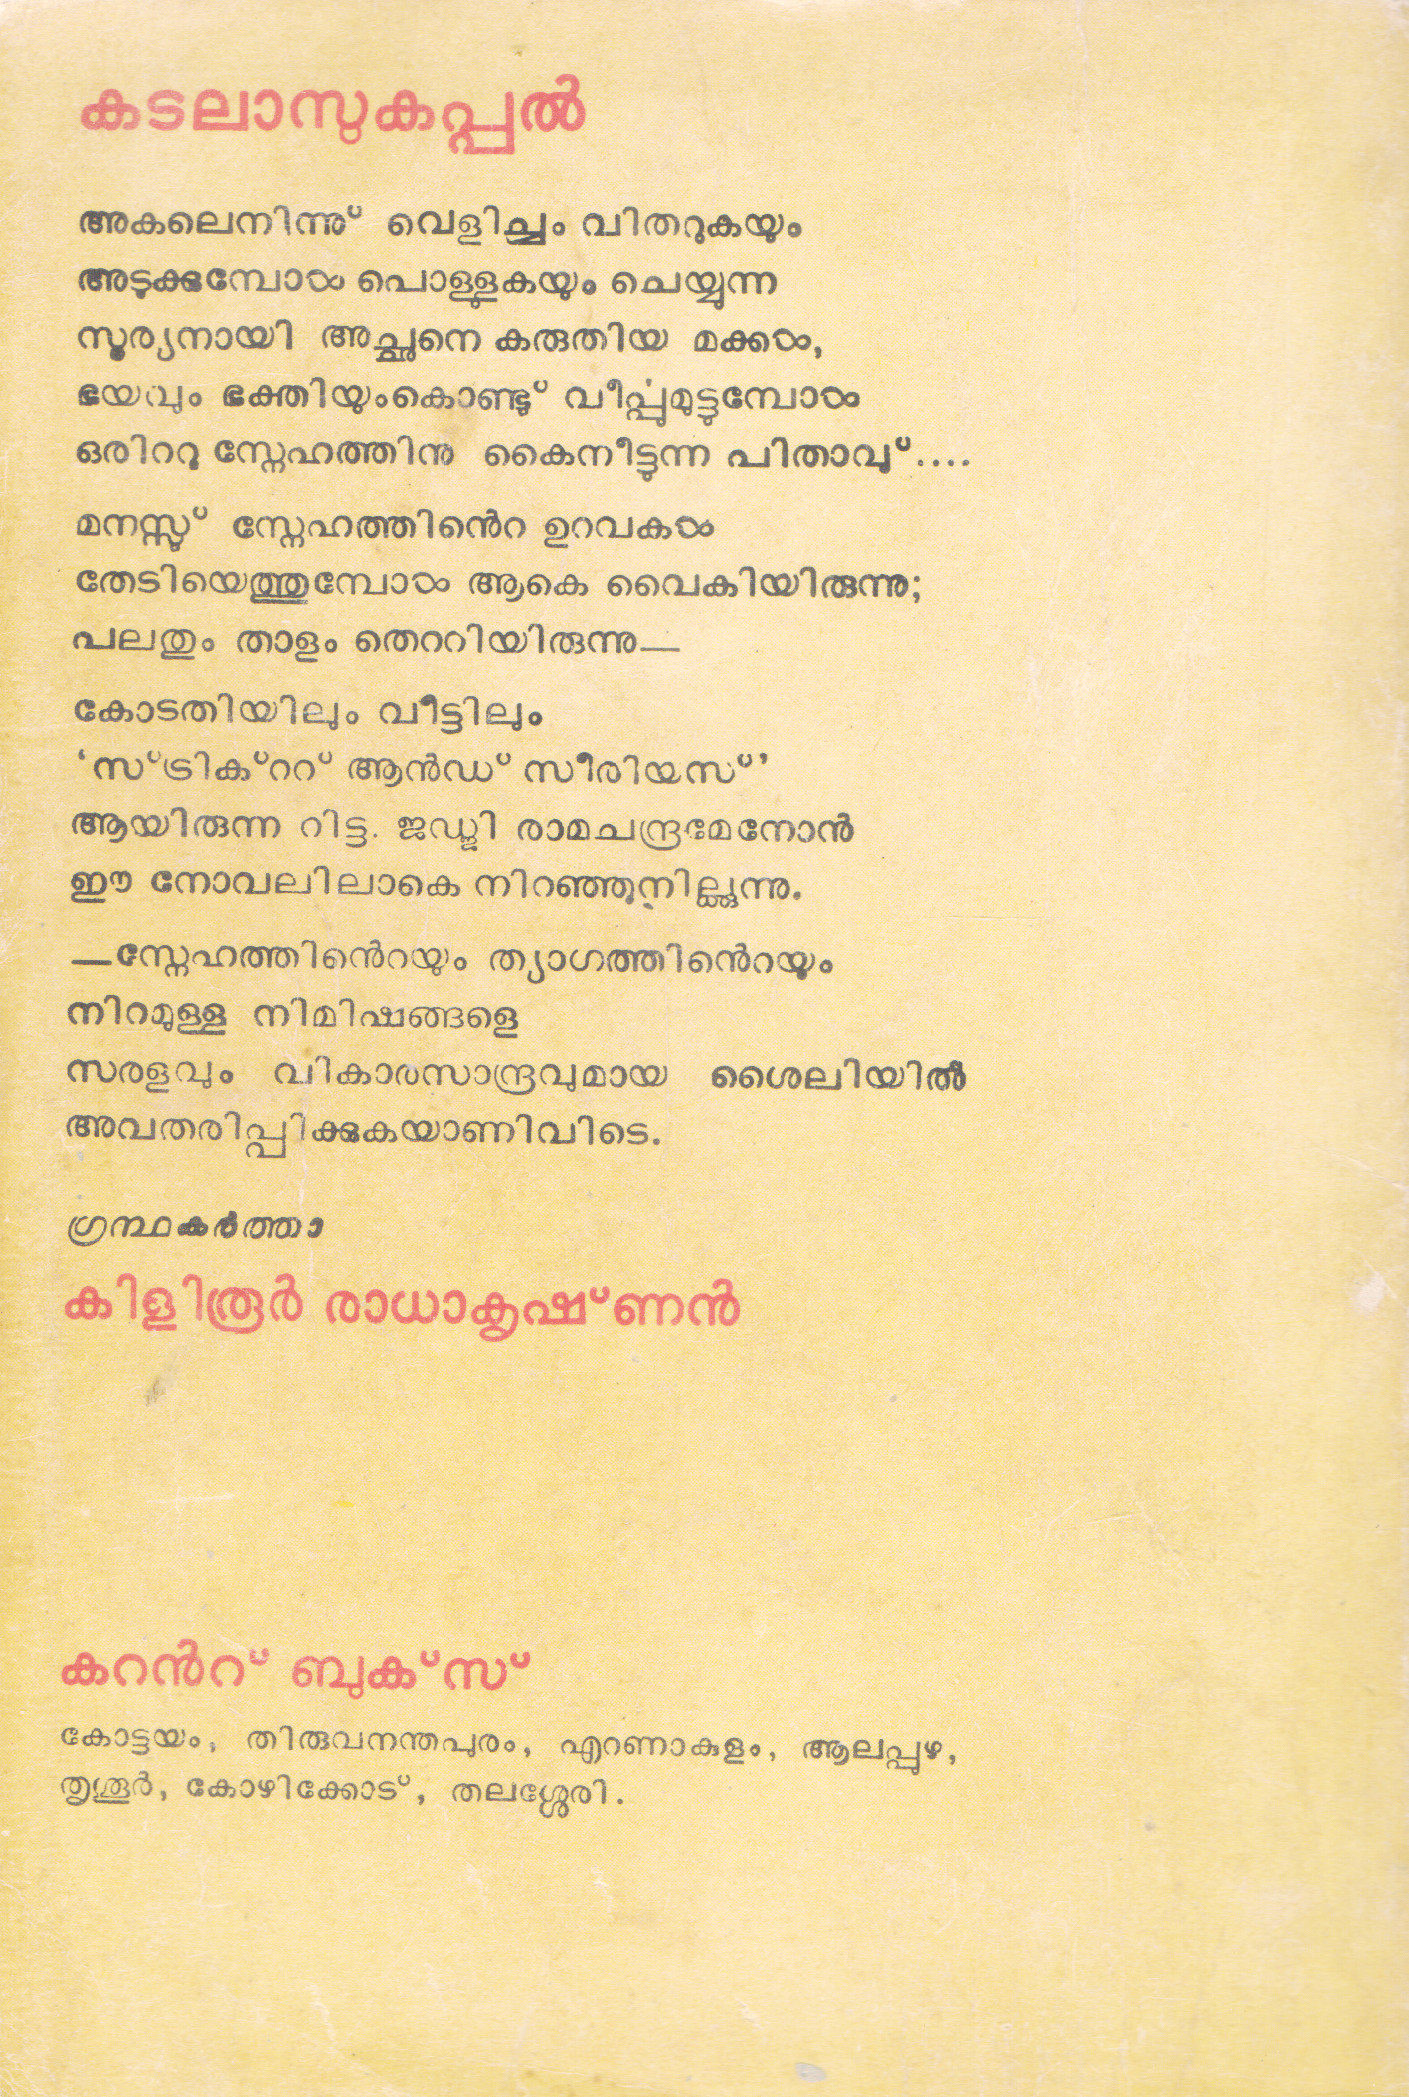 കടലാസുകപ്പൽ
അകലെനിന്നു് വെളിച്ചം വിതറുകയും
അടുക്കുമ്പോൾ പൊള്ളുകയും ചെയ്യുന്ന
സൂര്യനായി അച്ഛനെ കരുതിയ മക്കൾ,
ഭയവും ഭക്തിയുംകൊണ്ടു് വീർപ്പുമുട്ടുമ്പോൾ
ഒരിററു സ്നേഹത്തിനു കൈനീട്ടുന്ന പിതാവു്....
മനസ്സു് സ്നേഹത്തിൻെറ ഉറവകൾ
തേടിയെത്തുമ്പോൾ ആകെ വൈകിയിരുന്നു;
പലതും താളം തെററിയിരുന്നു—
കോടതിയിലും വീട്ടിലും
‘സ്ട്രിക്ററ് ആൻഡ് സീരിയസ്’
ആയിരുന്ന റിട്ട. ജഡ്ജി രാമചന്ദ്രമേനോൻ
ഈ നോവലിലാകെ നിറഞ്ഞുനില്ക്കുന്നു.
—സ്നേഹത്തിൻെറയും ത്യാഗത്തിൻെറയും
നിറമുള്ള നിമിഷങ്ങളെ
സരളവും വികാരസാന്ദ്രവുമായ ശൈലിയിൽ
അവതരിപ്പിക്കുകയാണിവിടെ.
ഗ്രന്ഥകർത്താ
കിളിരൂർ രാധാകൃഷ്ണൻ
കറൻറ് ബുക്സ്
കോട്ടയം, തിരുവനന്തപുരം, എറണാകുളം, ആലപ്പുഴ,
തൃശൂർ, കോഴിക്കോട്, തലശ്ശേരി.